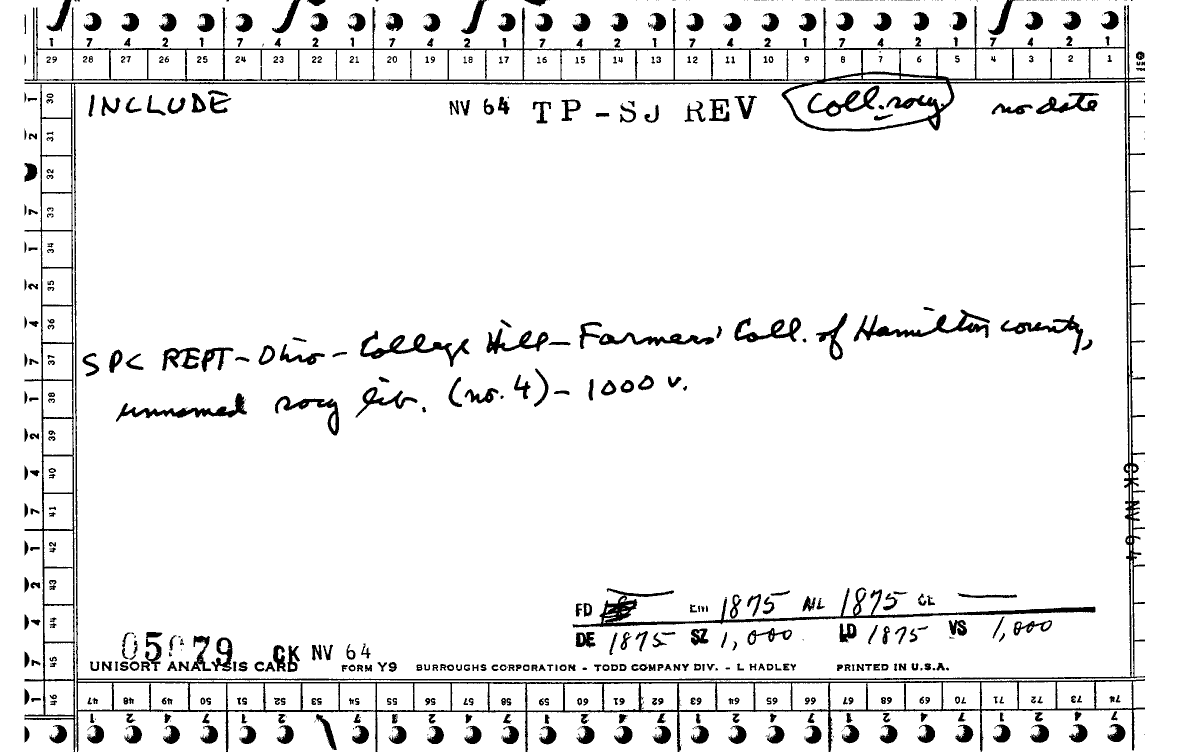 1 7 4 2 1 7 4 2 1 7 4 2 1 7 4 2 1 7 4 2 1 7 4 2 1 7 4 2 1
29 28 27 26 25 24 23 22 21 20 19 18 17 16 15 14 13 12 11 10 9 8 7 6 5 4 3 2 1
INCLUDE NV 64 TP-SJ REV Coll. socy. no date
SPC REPT - Ohio - College Hill - Farmers' Coll. of Hamilton county,
unnamed socy lib. (no. 4) - 1000 v.
FD Em 1875 AIL 1875 CL
DE 1875 SZ 1,000 LD 1875 VS 1,000
CK NV 64
UNISORT ANALYSIS CARD FORM Y9 BURROUGHS CORPORATION - TODD COMPANY DIV. - L HADLEY PRINTED IN U.S.A.
47 48 49 50 51 52 53 54 55 56 57 58 59 60 61 62 63 64 65 66 67 68 69 70 71 72 73 74
1 2 4 7 1 2 4 7 1 2 4 7 1 2 4 7 1 2 4 7 1 2 4 7 1 2 4 7
30
31
32
33
34
35
36
37
38
39
40
41
42
43
44
45
46
CK NV 64